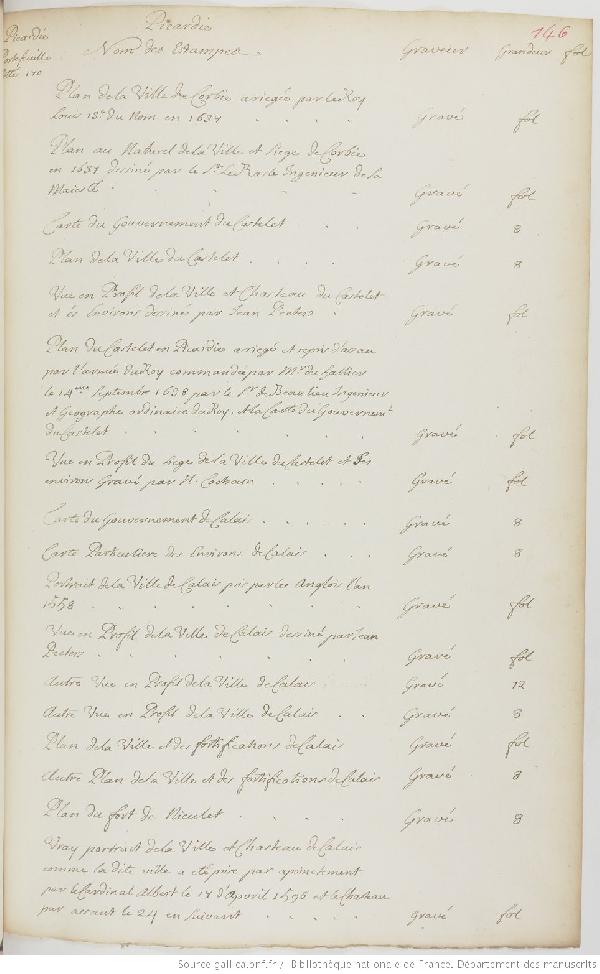 Picardie 146
Picardie
Portefeuille
Nom des Estampes. Graveur Grandeur fol
Plan de la Ville de Corbie assiegée par le Roy
Louis 13e. du Nom en 1637 Gravé fol
Plan au Naturel de la Ville et siege de Corbie
en 1637 dessiné par le Sr. Le Rasle Ingenieur de Sa
Maiesté Gravé fol
Carte du Gouvernement du Castelet Gravé 8
Plan de la Ville du Castelet Gravé 8
Vue en Profil de la Ville et Chasteau du Castelet
et és Environs dessinée par Jean Peeters Gravé fol
Plan du Castelet en Picardie assiegé et repris d'assau
par l'armée du Roy commandée par Mr. du Hallier
le 14me Septembre 1638 par le Sr. de Beaulieu Ingenieur
et Geographe ordinaire du Roy, et la Carte du Gouvernemt.
du Castelet Gravé fol
Vue en Profil du siege de la Ville du Castelet et des
environs Gravé par N. Cochin Gravé fol
Carte du Gouvernement de Calais Gravé 8
Carte Particuliere des Environs de Calais Gravé 8
Portrait de la Ville de Calais pris par les Anglois l'an
1558 Gravé fol
Vue en Profil de la Ville de Calais dessiné par Jean
Peeters Gravé fol
Autre Vue en Profil de la Ville de Calais Gravé 12
Autre Vue en Profil de la Ville de Calais Gravé 8
Plan de la Ville et des fortifications de Calais Gravé fol
Autre Plan de la Ville et des fortifications de Calais Gravé 8
Plan du fort de Nieulet Gravé 8
Vray portrait de la Ville et Chasteau de Calais
comme la dite ville a eté prise par apointement
par le Cardinal Albert le 18 d'Apvril 1596 et le Chateau
par assaut le 24 en suivant Gravé fol
Source gallica.bnf.fr / Bibliothèque nationale de France. Département des manuscrits